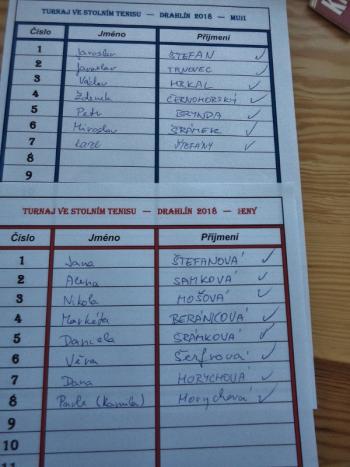 TURNAJ VE STOLNÍM TENISU — DRAHLÍN 2018 — MUžI
Číslo Jméno Příjmení
1 Jaroslav ŠTEFAN ✓
2 Jaroslav TRNOVEC ✓
3 Václav HRKAL ✓
4 Zdeněk ČERNOHORSKÝ ✓
5 Petr BRYNDA ✓
6 Miroslav ŠRÁMEK ✓
7 Karel ✓
8
9
TURNAJ VE STOLNÍM TENISU — DRAHLÍN 2018 — žENY
Číslo Jméno Příjmení
1 Jana ŠTEFANOVÁ ✓
2 Alena SAMKOVÁ ✓
3 Nikola MOŠOVÁ ✓
4 Markéta BERÁNKOVÁ ✓
5 Daniela ŠRÁMKOVÁ ✓
6 Věra ✓
7 Dana HORYCHOVÁ ✓
8 (Kamila) Horychová ✓
9
10
11